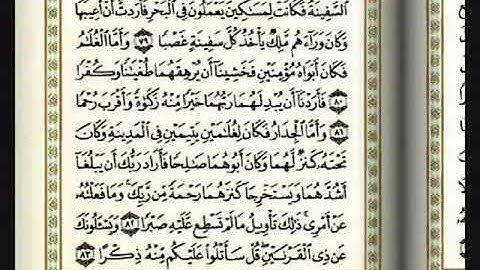 السَّفِينَةُ فَكَانَتْ لِمَسَٰكِينَ يَعْمَلُونَ فِي الْبَحْرِ فَأَرَدتُّ أَنْ أَعِيبَهَا
وَكَانَ وَرَآءَهُم مَّلِكٌ يَأْخُذُ كُلَّ سَفِينَةٍ غَصْبًا ٧٩ وَأَمَّا الْغُلَٰمُ
فَكَانَ أَبَوَاهُ مُؤْمِنَيْنِ فَخَشِينَآ أَن يُرْهِقَهُمَا طُغْيَٰنًا وَكُفْرًا
٨٠ فَأَرَدْنَآ أَن يُبْدِلَهُمَا رَبُّهُمَا خَيْرًا مِّنْهُ زَكَوٰةً وَأَقْرَبَ رُحْمًا
٨١ وَأَمَّا الْجِدَارُ فَكَانَ لِغُلَٰمَيْنِ يَتِيمَيْنِ فِي الْمَدِينَةِ وَكَانَ
تَحْتَهُۥ كَنزٌ لَّهُمَا وَكَانَ أَبُوهُمَا صَٰلِحًا فَأَرَادَ رَبُّكَ أَن يَبْلُغَآ
أَشُدَّهُمَا وَيَسْتَخْرِجَا كَنزَهُمَا رَحْمَةً مِّن رَّبِّكَ ۚ وَمَا فَعَلْتُهُۥ
عَنْ أَمْرِي ۚ ذَٰلِكَ تَأْوِيلُ مَا لَمْ تَسْطِع عَّلَيْهِ صَبْرًا ٨٢ وَيَسْـَٔلُونَكَ
عَن ذِي الْقَرْنَيْنِ ۖ قُلْ سَأَتْلُوا۟ عَلَيْكُم مِّنْهُ ذِكْرًا ٨٣